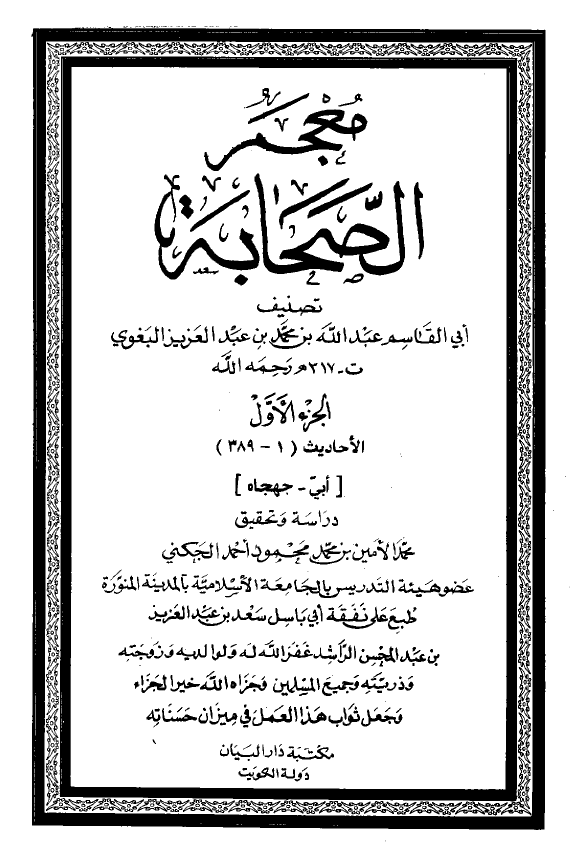 معجم
الصحابة
تصنيف
أبي القاسم عبد الله بن محمد بن عبد العزيز البغوي
ت ـ ٣١٧ هـ رحمه الله
الجزء الأول
الأحاديث ( ١ - ٣٨٩ )
[ أبيّ - جهجاه ]
دراسة وتحقيق
محمد الأمين بن محمد محمود أحمد الجكني
عضو هيئة التدريس بالجامعة الإسلامية بالمدينة المنورة
طبع على نفقة أبي باسل سعد بن عبد العزيز
بن عبد المحسن الراشد غفر الله له ولوالديه وزوجته
وذريته وجميع المسلمين وجزاه الله خير الجزاء
وجعل ثواب هذا العمل في ميزان حسناته
مكتبة دار البيان
دولة الكويت